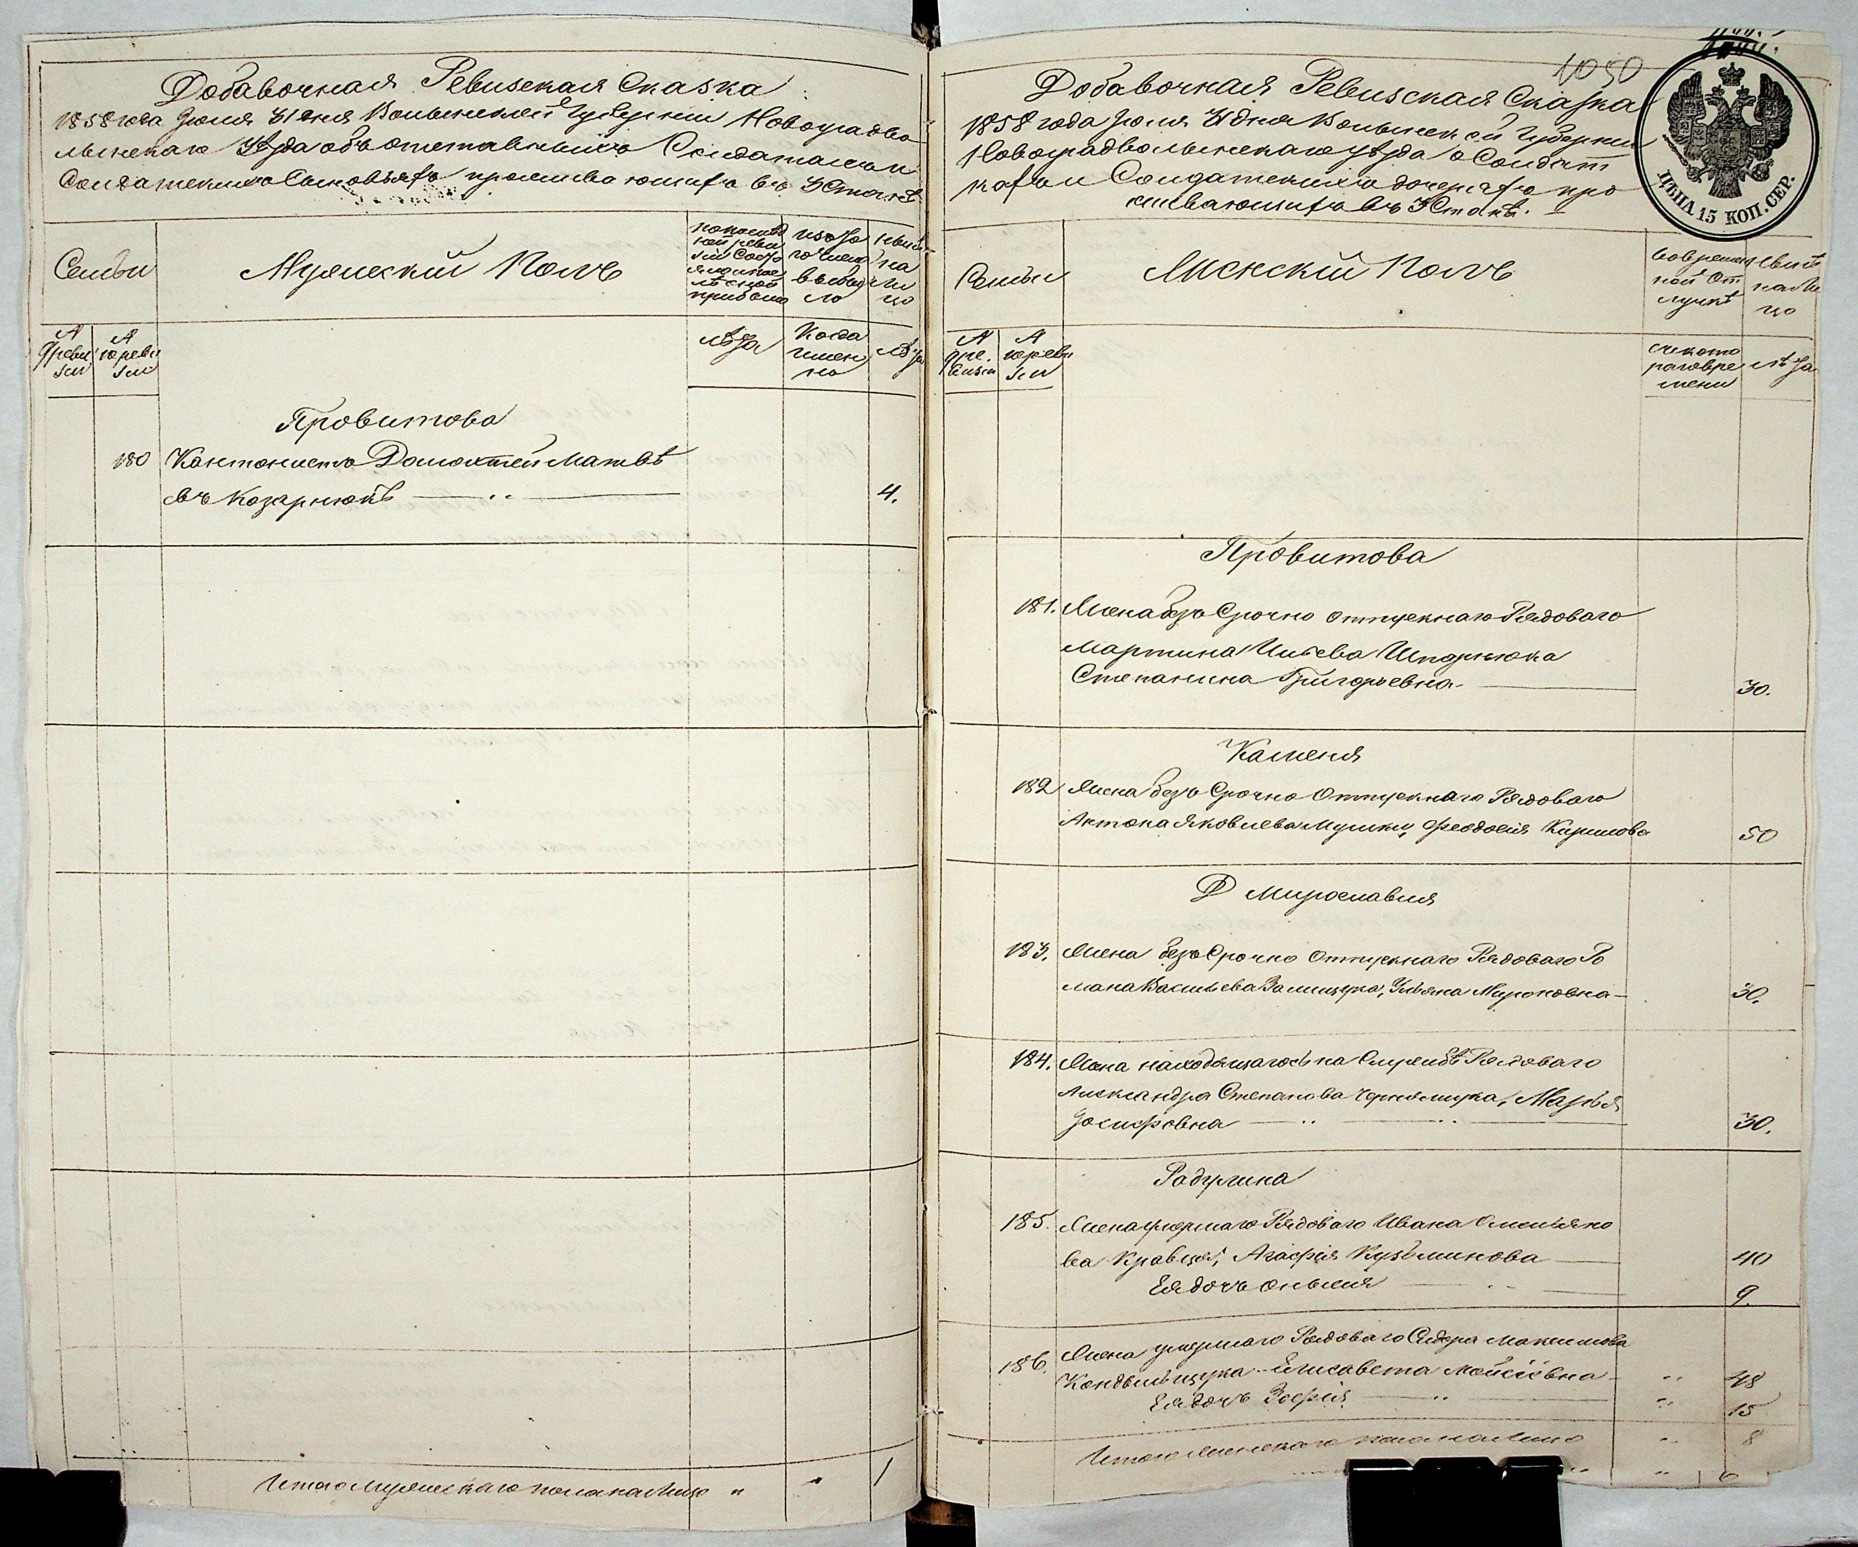 Добавочная Ревизская Сказка
1858 года Июля 31 дня Волынской Губернии Новоградво
лынскаго Уезда объ отставныхъ Солдатахъ и
Солдатскихъ Сыновьяхъ проживающихъ въ 3 Станѣ
Семьи
Мужескій Полъ
по послѣд
ней реви
зіи Состо
яло и по
слѣ оной
прибыло
изъ То
го числа
выбы
ло
нынѣ
на
ли
цо
№
9 реви
зіи
№
10 реви
зіи
лѣта
Когда
имен
но
лѣта
Провитова
180 Кантонистъ Доможтей Матвѣ
въ Козарнюкъ
4.
Итого мужескаго пола на Лицо " " 1
1050
Добавочная Ревизская Сказка
1858 года Июля 31 дня Волынской Губерніи
Новоградволынскаго уѣзда о Солдат
кахъ и Солдатскихъ дочеряхъ про
живающихъ въ 3 Станѣ.
ЦѢНА 15 КОП. СЕР.
Семьи
Женскій Полъ
во времен
ной От
лучкѣ
нынѣ
на Ли
цо
№
9 ре.
визіи
№
10 реви
зіи
съ кото
раго вре
мени
лѣта
Провитова
181. Жена безъ Срочно отпускнаго Рядоваго
Мартина Ильева Шпарнюка
Степанина Григорьевна 30.
Каменя
182 Жена безъ Срочно Отпускнаго Рядоваго
Антона Яковлева Мушки, Феодосія Кирилова 50
Д Мирославля
183. Жена безъ Срочно Отпускнаго Рядоваго Ро
мана Васильева Залищука, Ульяна Мироновна 30.
184. Жена находящагось на Службѣ Рядоваго
Александра Степанова Чернямука, Марья
Іосифовна 30.
Радулина
185. Жена умершаго Рядоваго Ивана Омельяно
ва Кравця, Агафія Кузьминова 40
Ея дочь Оньмія 9.
186. Жена умершаго Рядоваго Сидора Максимова
Кондынищука Елисавета Мойсіевна " 48
Ея дочь Зофія " 15
Итого женскаго пола на Лицо " 8